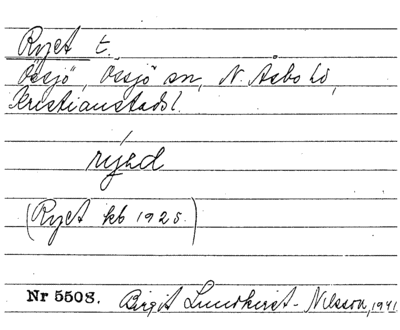 Ryet t.
Össjö, Össjö sn, N. Åsbo hd,
Kristianstads l.
rýəd
(Ryet kb 1925.)
Nr 5508. Birgit Lundkvist-Nilsson, 1941